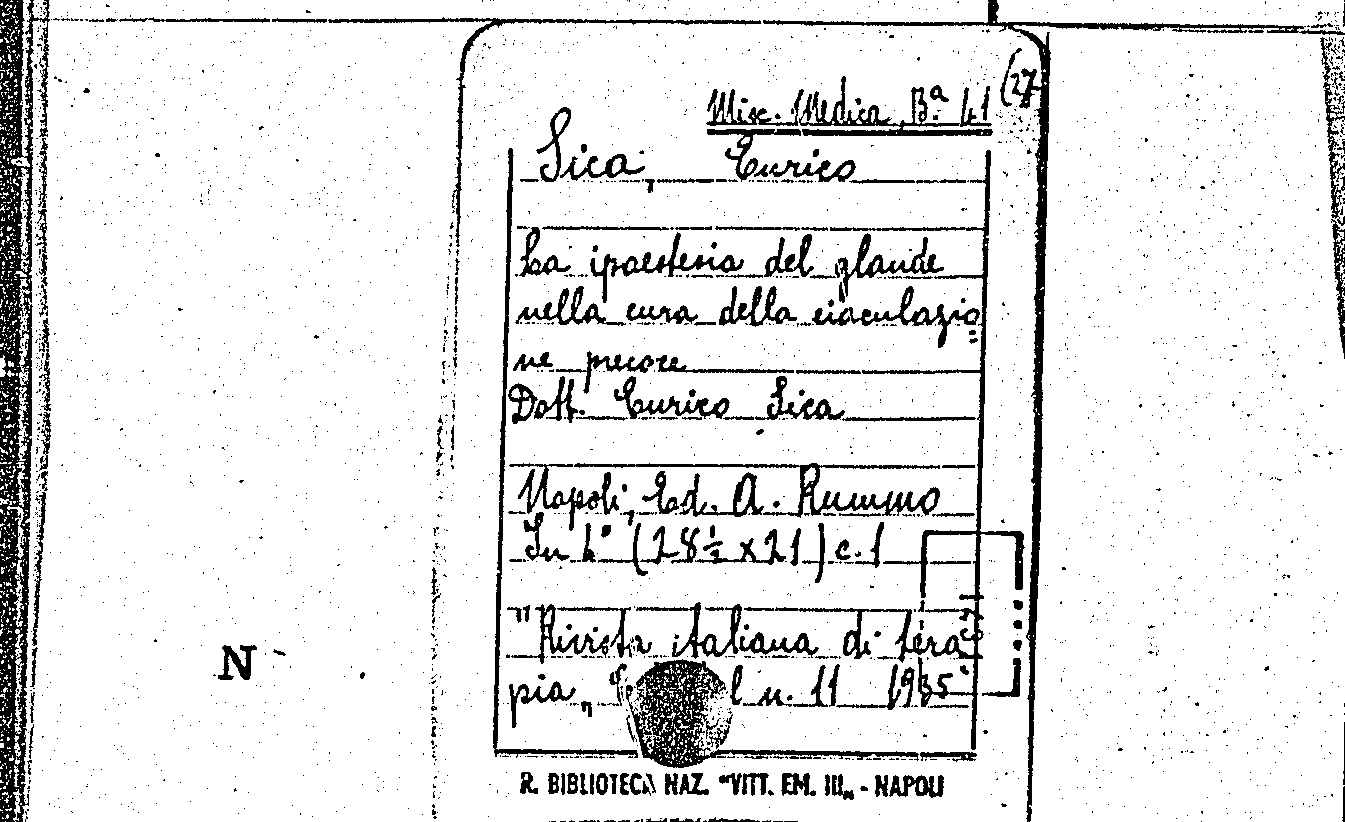 (27
Misc. Medica, Bª 41
Sica, Enrico
La ipaestesia del glande
nella cura della eiaculazio=
ne precore
Dott. Enrico Sica
Napoli, Ed. A. Rummo
In 4° (28½ x 21) c. 1
"Rivista italiana di tera=
pia„ l n. 11 1935
N
R. BIBLIOTECA NAZ. "VITT. EM. III„ - NAPOLI